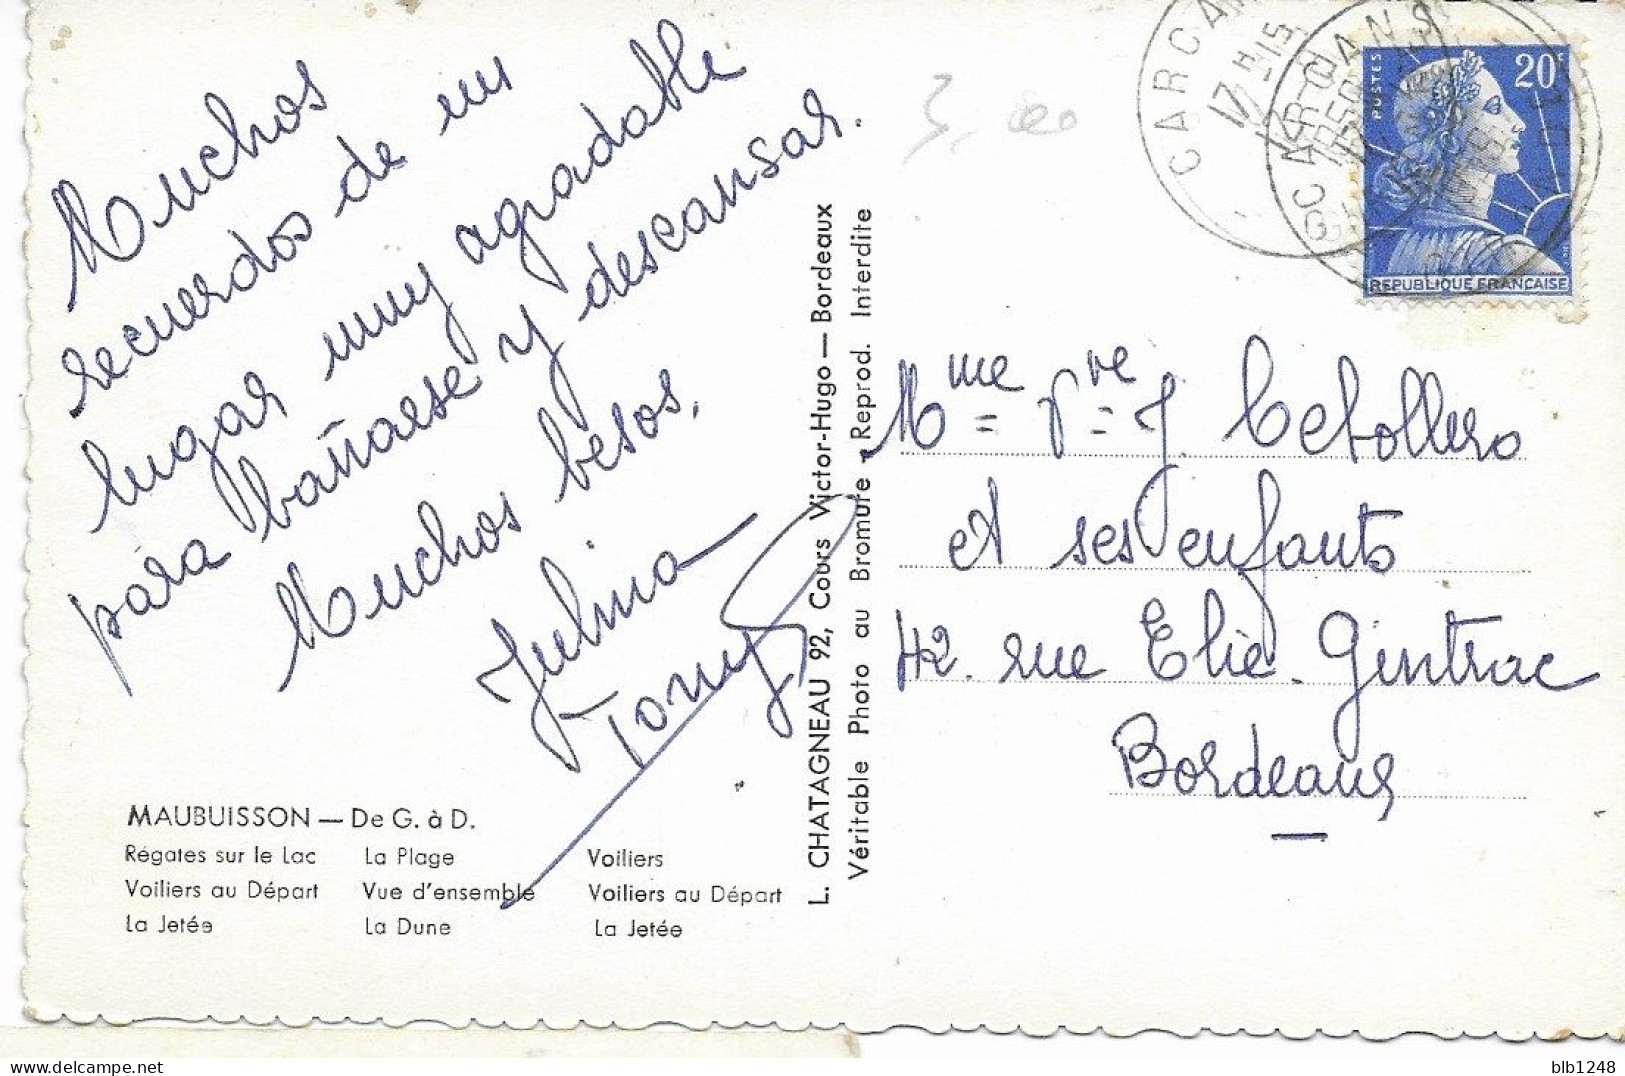 Muchos
recuerdos de un
lugar muy agradable
para bañarse y descansar.
Muchos besos,
Julina
Tony
MAUBUISSON — De G. à D.
Régates sur le Lac La Plage Voiliers
Voiliers au Départ Vue d'ensemble Voiliers au Départ
La Jetée La Dune La Jetée
L. CHATAGNEAU 92, Cours Victor-Hugo — Bordeaux
Véritable Photo au Bromure - Reprod. Interdite
3,00
CARCANS
17 H 15
POSTES 20F
REPUBLIQUE FRANÇAISE
Mme Vve J. Cebollero
et ses enfants
42. rue Elie. Gintrac
Bordeaux
blb1248